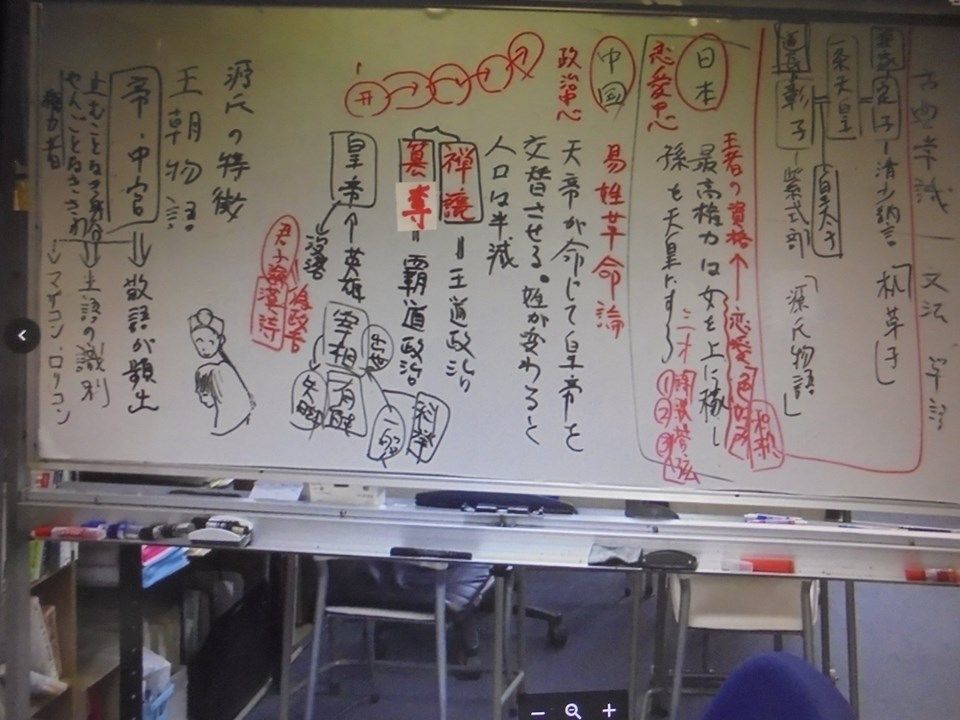 古典常識 文法 単語
定子 ― 清少納言 「枕草子」
一条天皇
皇太子
道長 彰子 ― 紫式部 「源氏物語」
王者の資格 ↑ 恋愛 色好み
日本 最高権力は女を上に嫁し 和歌
恋愛中心 孫を天皇にする 三才 ①詩 ②歌 ③管弦
易姓革命論
中国 天帝が命じて皇帝を
政治中心 交替させる。姓が変わると
人口は半減
禅譲 = 王道政治
簒奪 = 覇道政治
皇帝 ↑ 英雄 宰相 科挙
君子論 漢詩
源氏の特徴
王朝物語
帝・中宮 ⇒ 敬語が頻出
止むことなき身分 → 主語の識別
やんごとなき → マザコン・ロリコン
権力者